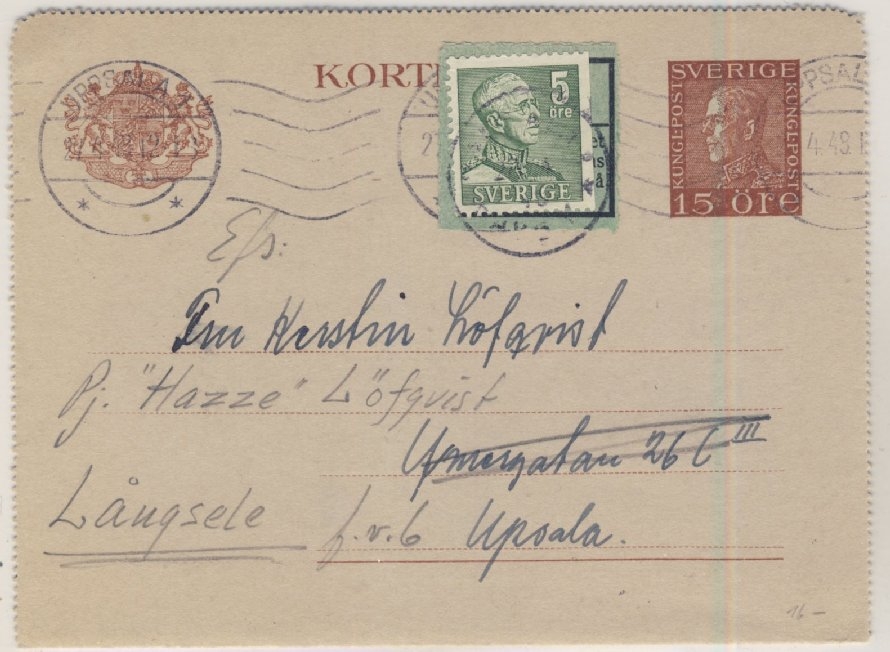 KORT
UPPSALA 1
SVERIGE
KUNGL·POST
KUNGL·POST
15 ÖRE
5
öre
SVERIGE
et
4.48
Fru Kerstin Löfqvist
Pj. "Hazze" Löfqvist
26 C III
Långsele
f.v.b Upsala.
16-